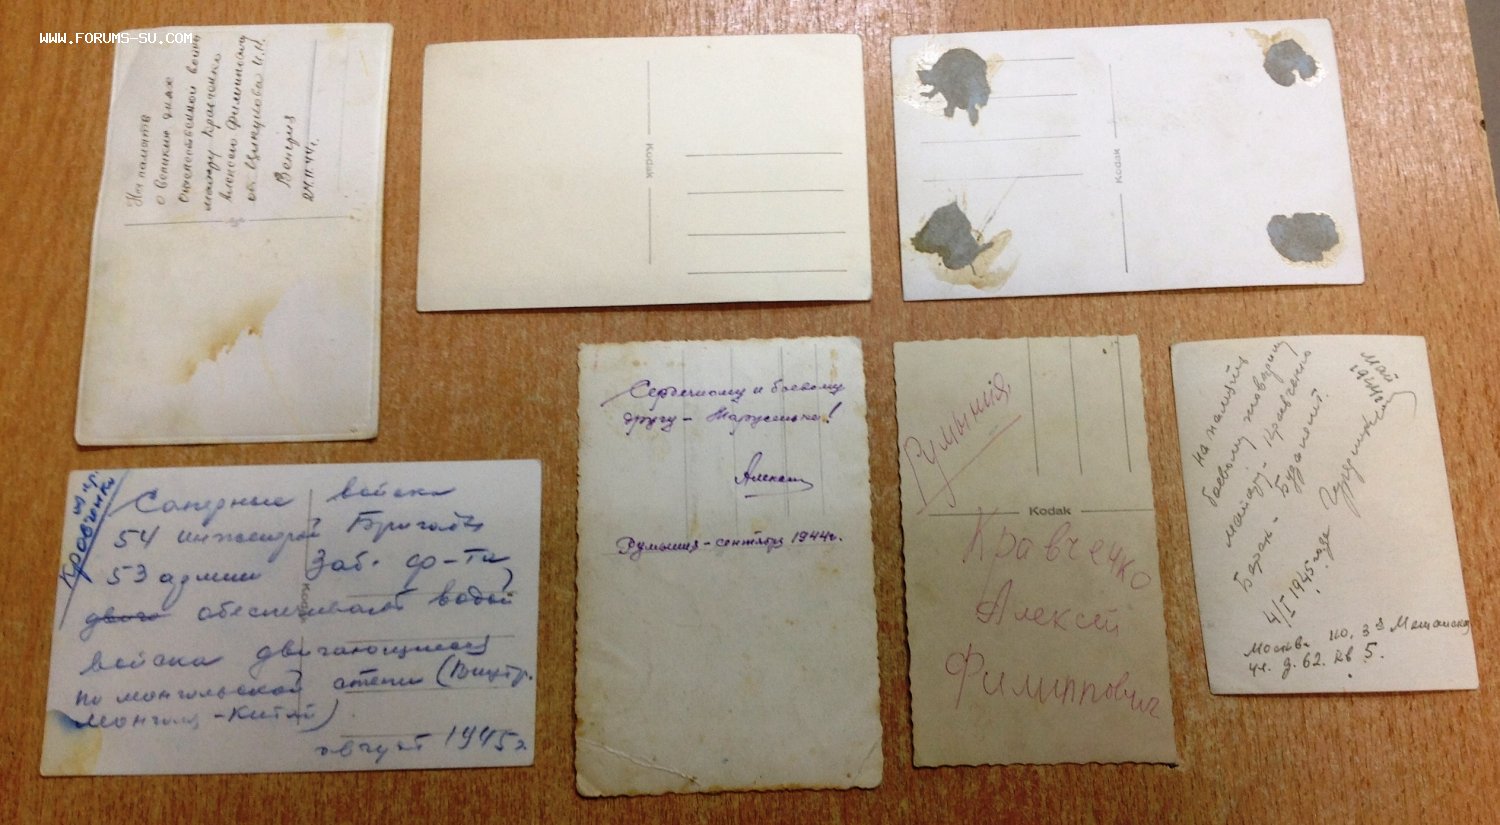 WWW.FORUMS-SU.COM
На память
о великих днях
Отечественной войны
майору Кравченко
Алексею Филипповичу
от
Венгрия
Kodak
Kodak
Кравченко
Саперные войска
54 инженерной Бригады
53 армии Заб. ф-та
обеспечивают водой
войска двигающиеся
по монгольской степи (Внутр.
Монголия-Китай)
август 1945г.
Kodak
Сердечному и боевому
другу - Марусеньке!
Алексей
Румыния - сентябрь 1944г.
Румынія
Kodak
Кравченко
Алексей
Филиппович
На память
боевому товарищу
майору - Кравченко
Будапешт
4/I 1945 года
Май
Москва 110, 3я Мещанская
ул. д. 62. кв 5.